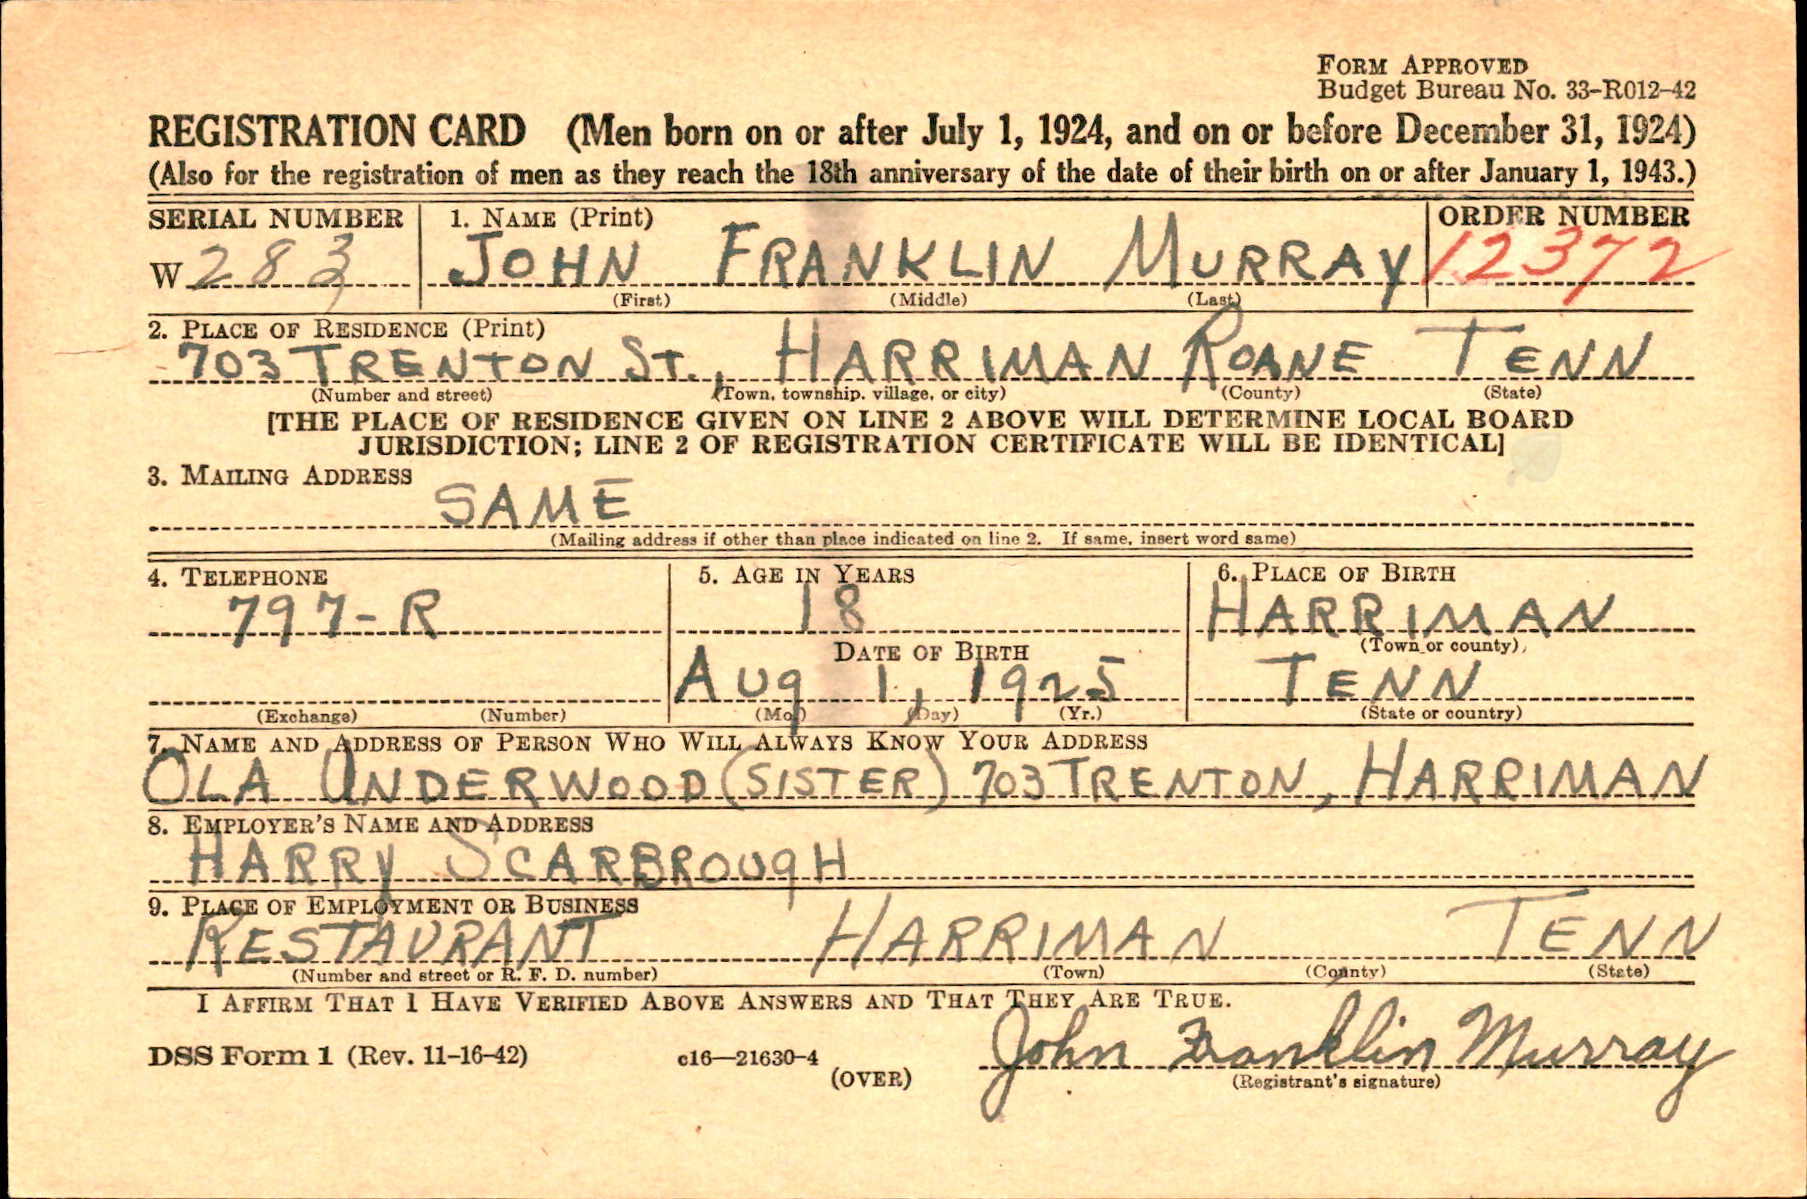 FORM APPROVED
Budget Bureau No. 33-R012-42
REGISTRATION CARD (Men born on or after July 1, 1924, and on or before December 31, 1924)
(Also for the registration of men as they reach the 18th anniversary of the date of their birth on or after January 1, 1943.)
SERIAL NUMBER 1. NAME (Print) ORDER NUMBER
W 283 JOHN FRANKLIN MURRAY 12372
(First) (Middle) (Last)
2. PLACE OF RESIDENCE (Print)
703 TRENTON ST., HARRIMAN ROANE TENN
(Number and street) (Town, township, village, or city) (County) (State)
[THE PLACE OF RESIDENCE GIVEN ON LINE 2 ABOVE WILL DETERMINE LOCAL BOARD
JURISDICTION; LINE 2 OF REGISTRATION CERTIFICATE WILL BE IDENTICAL]
3. MAILING ADDRESS
SAME
(Mailing address if other than place indicated on line 2. If same, insert word same)
4. TELEPHONE 5. AGE IN YEARS 6. PLACE OF BIRTH
797-R 18 HARRIMAN
DATE OF BIRTH (Town or county)
Aug 1, 1925 TENN
(Exchange) (Number) (Mo.) (Day) (Yr.) (State or country)
7. NAME AND ADDRESS OF PERSON WHO WILL ALWAYS KNOW YOUR ADDRESS
OLA UNDERWOOD (SISTER) 703 TRENTON, HARRIMAN
8. EMPLOYER'S NAME AND ADDRESS
HARRY SCARBROUGH
9. PLACE OF EMPLOYMENT OR BUSINESS
RESTAURANT HARRIMAN TENN
(Number and street or R. F. D. number) (Town) (County) (State)
I AFFIRM THAT I HAVE VERIFIED ABOVE ANSWERS AND THAT THEY ARE TRUE.
DSS Form 1 (Rev. 11-16-42) c16—21630-4 John Franklin Murray
(OVER) (Registrant's signature)